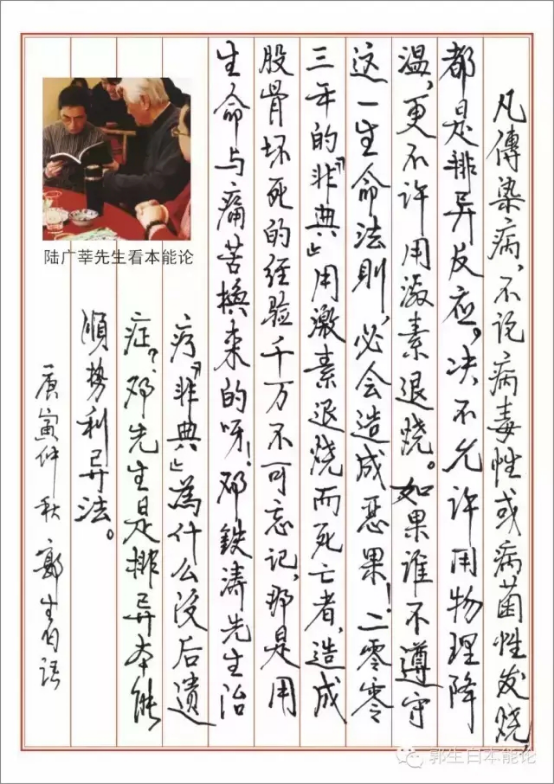 凡傳染病，不论病毒性或病菌性发烧，
都是排异反应。决不允许用物理降
温，更不许用激素退烧。如果谁不遵守
这一生命法则，必会造成恶果！二零零
三年的“非典”用激素退烧而死亡者，造成
股骨坏死的经验千万不可忘记，那是用
生命与痛苦换来的呀！邓铁涛先生治
疗“非典”為什么没后遗
症？邓先生是排异本能
順势利异法。
庚寅仲秋 郭生白语
陆广莘先生看本能论
郭生白本能论